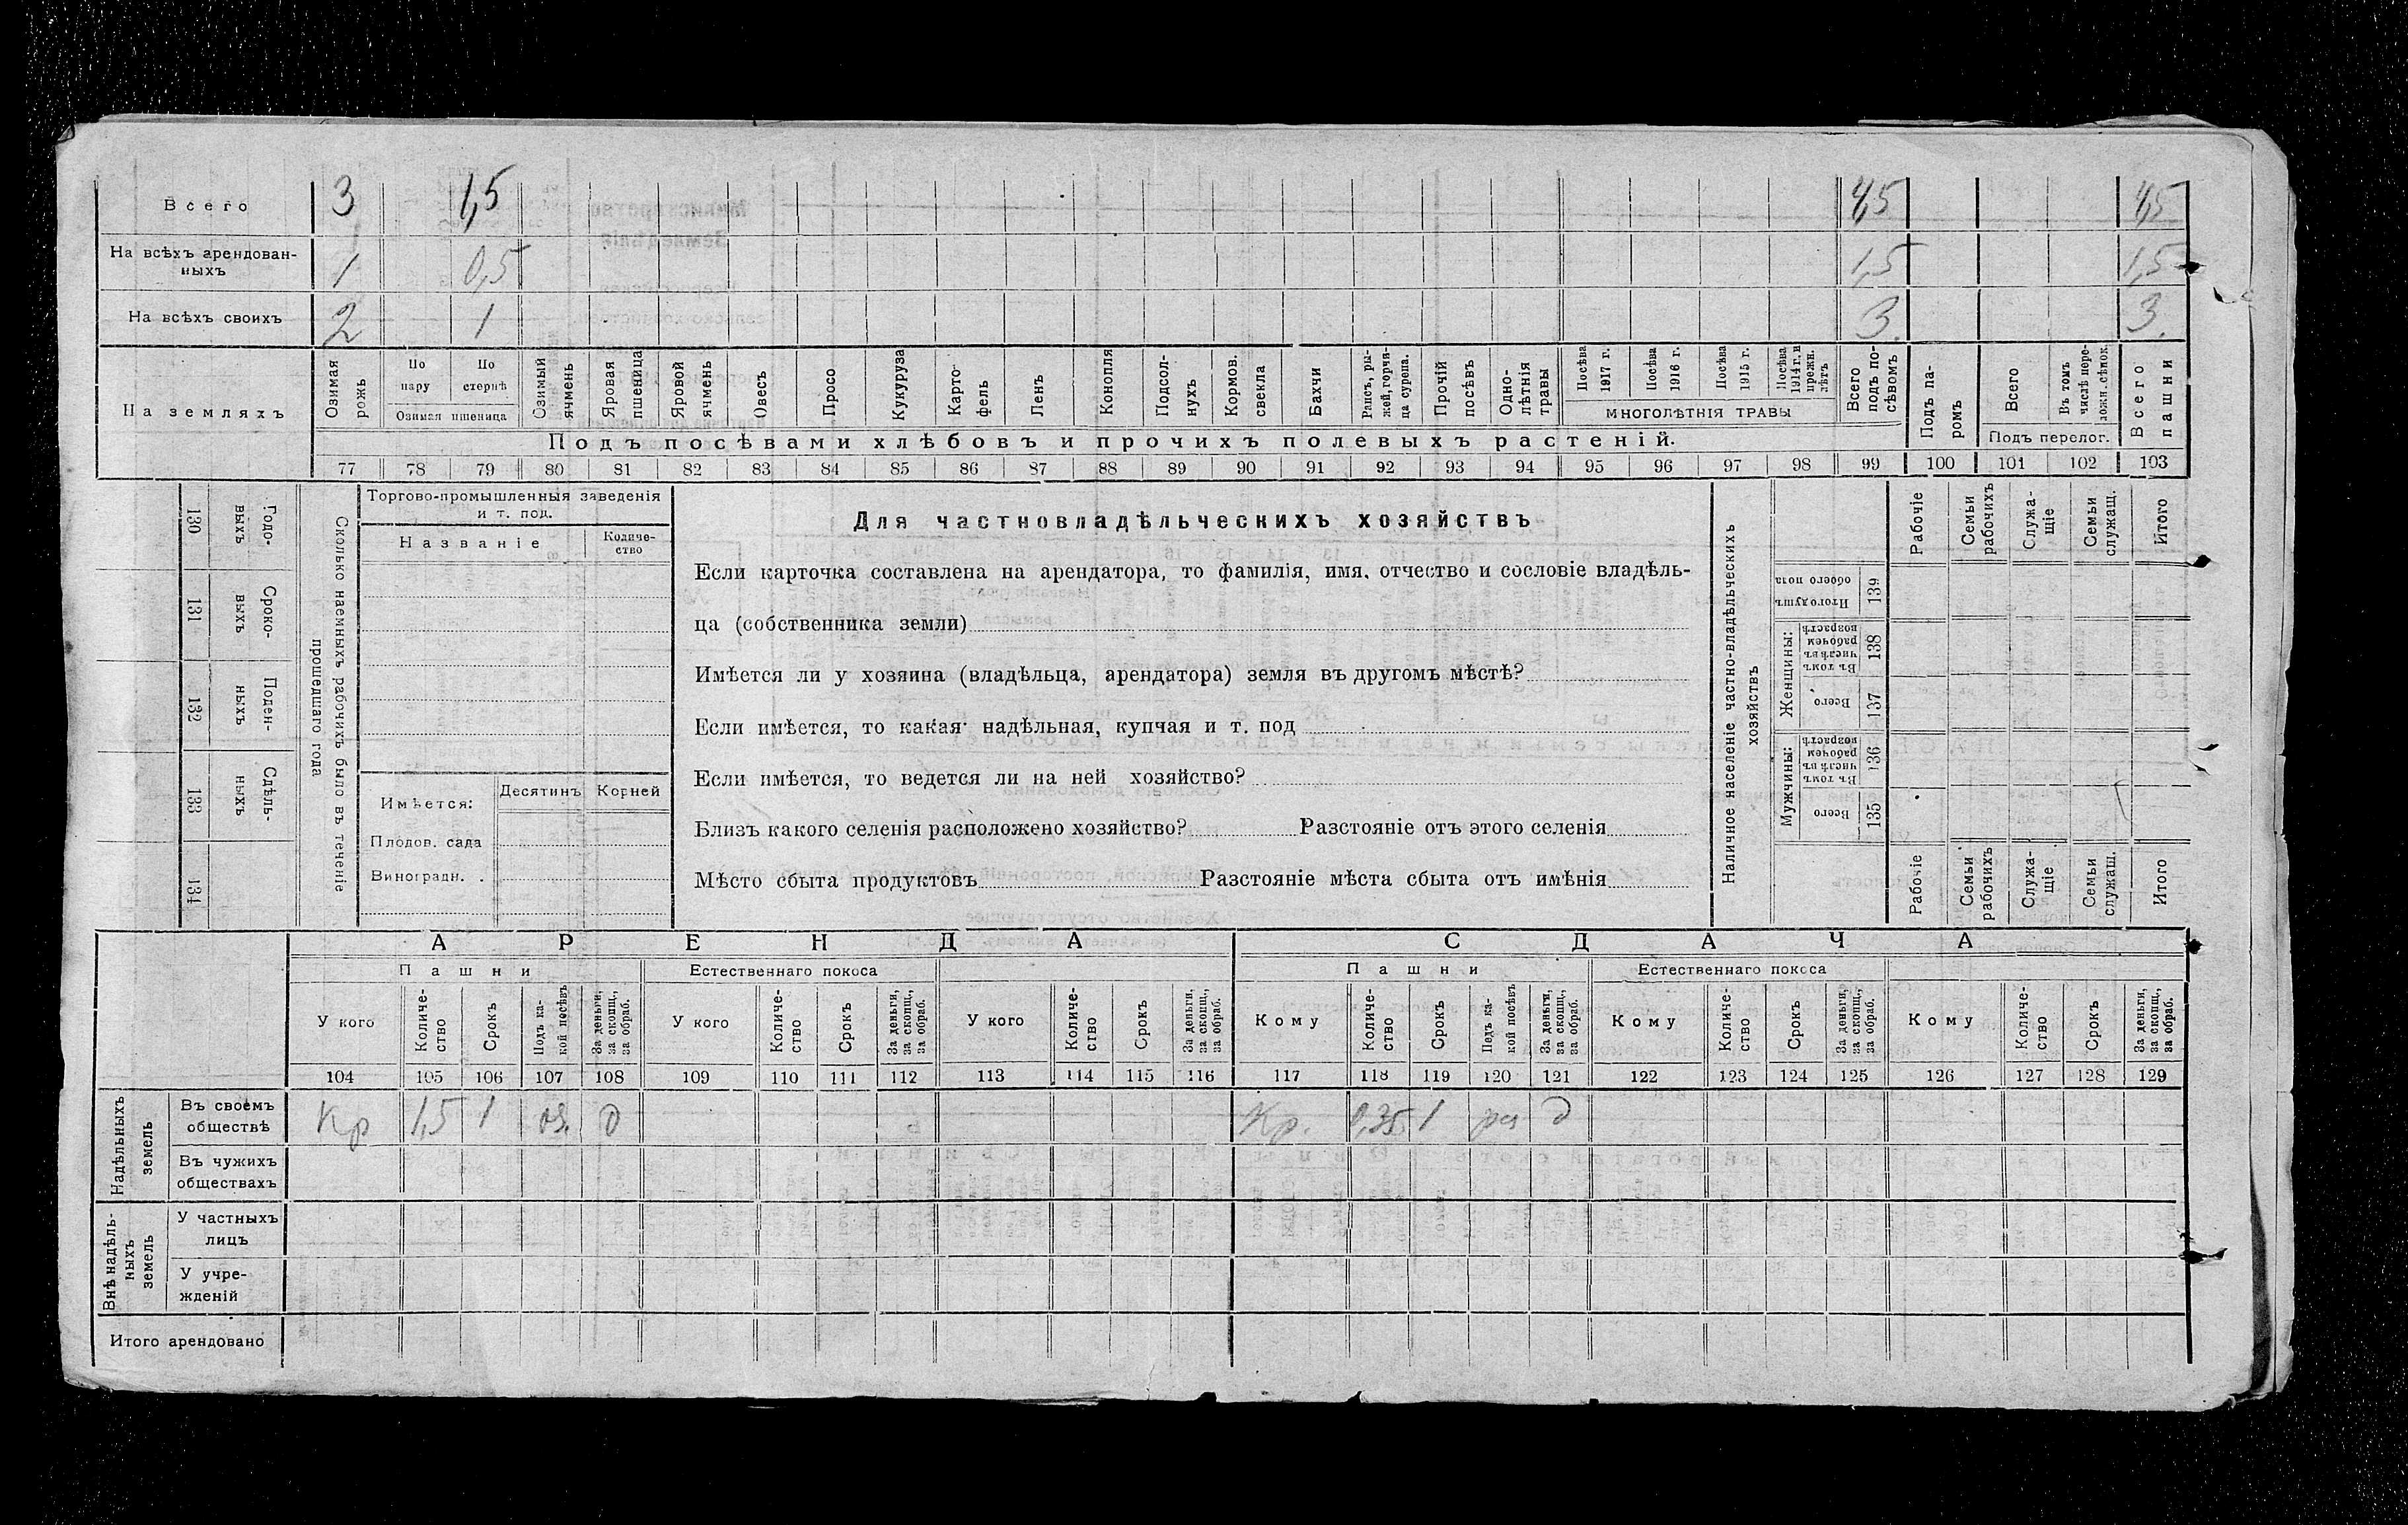 Всего 3 1,5 4,5 4,5
На всѣхъ арендован-
ныхъ 1 0,5 1,5 1,5
На всѣхъ своихъ 2 1 3. 3.
На земляхъ
Озимая рожь
По пару
По стернѣ
Озимая пшеница
Озимый ячмень
Яровая пшеница
Яровой ячмень
Овесъ
Просо
Кукуруза
Карто-
фель
Ленъ
Конопля
Подсол-
нухъ
Кормов. свекла
Бахчи
Рапсъ, ры-
жей, горчи-
ца сурепа.
Прочій посѣвъ
Одно-
лѣтнія
травы
Посѣва 1917 г.
Посѣва 1916 г.
Посѣва 1915 г.
Посѣва
1914 г. и
прежн.
лѣтъ
МНОГОЛѢТНІЯ ТРАВЫ
Всего
подъ по-
сѣвомъ
Подъ па-
ромъ
Всего
Въ томъ
числѣ пере-
ложн. сѣнок.
Подъ перелог.
Всего пашни
Подъ посѣвами хлѣбовъ и прочихъ полевыхъ растеній.
77 78 79 80 81 82 83 84 85 86 87 88 89 90 91 92 93 94 95 96 97 98 99 100 101 102 103
130 Годо-
выхъ
131 Сроко-
выхъ
132 Поден-
ныхъ
133 Сдѣль-
ныхъ
134
Сколько наемныхъ рабочихъ было въ теченіе
прошедшаго года
Торгово-промышленныя заведенія
и т. под.
Названіе
Количе-
ство
Имѣется:
Десятинъ Корней
Плодов. сада
Виноградн. .
Для частновладѣльческихъ хозяйствъ
Если карточка составлена на арендатора, то фамилія, имя, отчество и сословіе владѣль-
ца (собственника земли)
Имѣется ли у хозяина (владѣльца, арендатора) земля въ другомъ мѣстѣ?
Если имѣется, то какая надѣльная, купчая и т. под
Если имѣется, то ведется ли на ней хозяйство?
Близъ какого селенія расположено хозяйство? Разстояніе отъ этого селенія
Мѣсто сбыта продуктовъ Разстояніе мѣста сбыта отъ имѣнія
Наличное населеніе частно-владѣльческихъ
хозяйствъ
Рабочіе
Семьи рабочихъ
Служа-
щіе
Семьи служащ.
Итого
Итого душъ
обоего пола
139
Женщины:
Въ томъ
числѣ въ
рабочемъ
возрастѣ
138
Всего
137
Мужчины:
Въ томъ
числѣ въ
рабочемъ
возрастѣ
136
Всего
135
Рабочіе
Семьи рабочихъ
Служа-
щіе
Семьи служащ.
Итого
АРЕНДА СДАЧА
Пашни Естественнаго покоса Пашни Естественнаго покоса
У кого
Количе-
ство
Срокъ
Подъ ка-
кой посѣвъ
За деньги,
за скопщ.,
за обраб.
У кого
Количе-
ство
Срокъ
За деньги,
за скопщ.,
за обраб.
У кого
Количе-
ство
Срокъ
За деньги,
за скопщ.,
за обраб.
Кому
Количе-
ство
Срокъ
Подъ ка-
кой посѣвъ
За деньги,
за скопщ.,
за обраб.
Кому
Количе-
ство
Срокъ
За деньги,
за скопщ.,
за обраб.
Кому
Количе-
ство
Срокъ
За деньги,
за скопщ.,
за обраб.
104 105 106 107 108 109 110 111 112 113 114 115 116 117 118 119 120 121 122 123 124 125 126 127 128 129
Надѣльныхъ
земель
Въ своемъ
обществѣ
Кр 1,5 1 оз. д Кр. 0,35 1 д
Въ чужихъ
обществахъ
Внѣ надѣль-
ныхъ
земель
У частныхъ
лицъ
У учре-
жденій
Итого арендовано